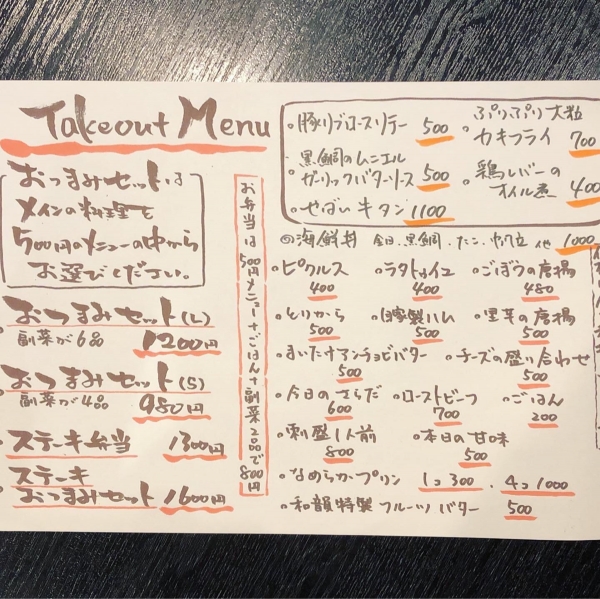 Takeout Menu
おつまみセットは
メインの料理を
500円のメニューの中から
お選びください。
おつまみセット(L)
副菜が6品 1200円
おつまみセット(S)
副菜が4品 980円
ステーキ弁当 1300円
ステーキ
おつまみセット 1600円
お弁当は500円メニュー+ごはん+副菜2品で800円
豚リブロースソテー 500
ぷりぷり大粒
カキフライ 700
黒鯛のムニエル
ガーリックバターソース 500
鶏レバーの
オイル煮 400
せばい牛タン 1100
海鮮丼 金目、黒鯛、たこ、帆立 他 1000
ピクルス
400
ラタトゥイユ
400
ごぼうの唐揚
480
とりから
500
自家製ハム
500
里芋の唐揚
500
まいたけアンチョビバター
500
チーズの盛り合わせ
500
今日のさらだ
600
ローストビーフ
700
ごはん
200
刺盛1人前
800
本日の甘味
500
なめらかプリン 1コ300、4コ1000
和韻特製フルーツバター 500